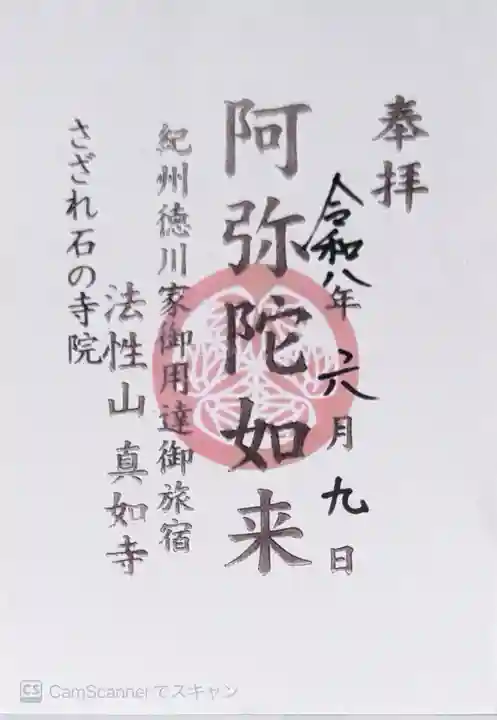 奉拝
令和八年 六月九日
阿弥陀如来
紀州徳川家御用達御旅宿
法性山 真如寺
さざれ石の寺院
CS CamScannerでスキャン